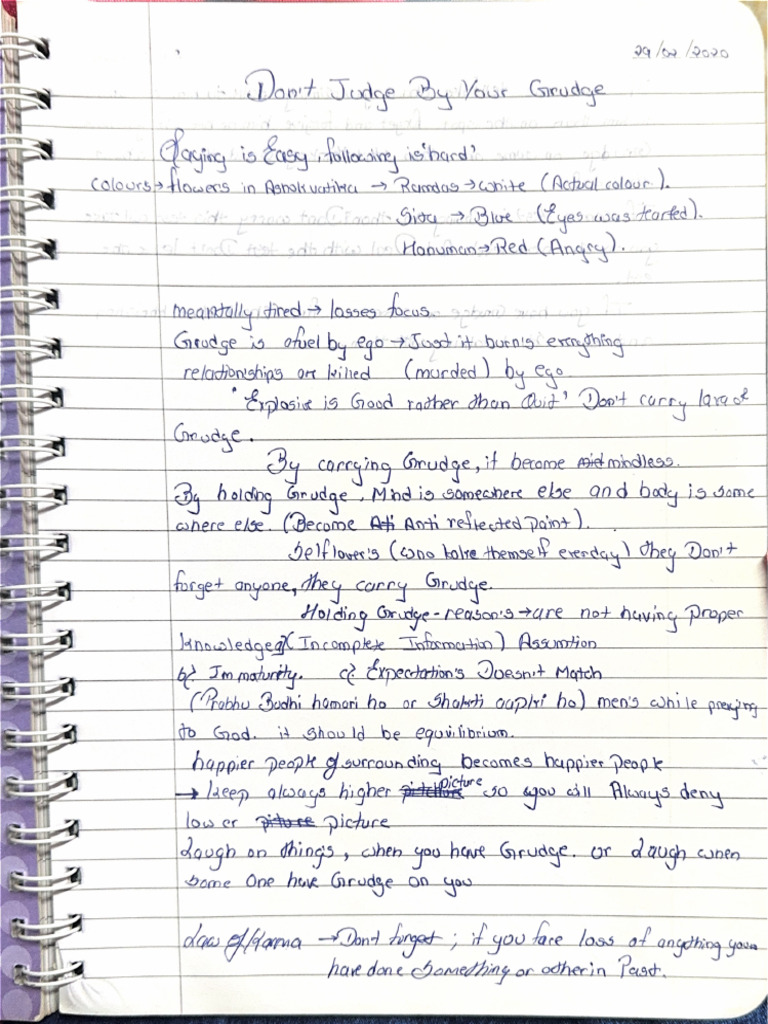 29/02/2020
Don't Judge By Your Grudge
Saying is Easy, following is 'hard'
Colours → flowers in Ashokvatika → Ramdas → white (Actual colour).
Sita → Blue (Eyes was tearted).
Hanuman → Red (Angry).
meantally tired → losses focus.
Grudge is a fuel by ego → Just it burn's everything
relationships are killed (murded) by ego.
'Explosive is Good rather than Quit' Don't carry lava of
Grudge.
By carrying Grudge, it become mindless.
By holding Grudge, Mind is somewhere else and body is some
where else. (Become Anti reflected paint).
Selflover's (who take themself everday) they Don't
forget anyone, they carry Grudge.
Holding Grudge - reason's → are not having Proper
knowledge (Incomplete Information) Assumtion
b) Immaturity. c) Expectation's Doesn't Match
(Prabhu Budhi hamari ho or Shakti aapki ho) men's while preying
to God. it should be equilibrium.
happier people of surrounding becomes happier people
→ keep always higher picture so you will Always deny
lower picture
Laugh on things, when you have Grudge. or Laugh when
some one have Grudge on you
Law of Karma → Don't forget; if you face loss of anything you
have done something or other in Past.